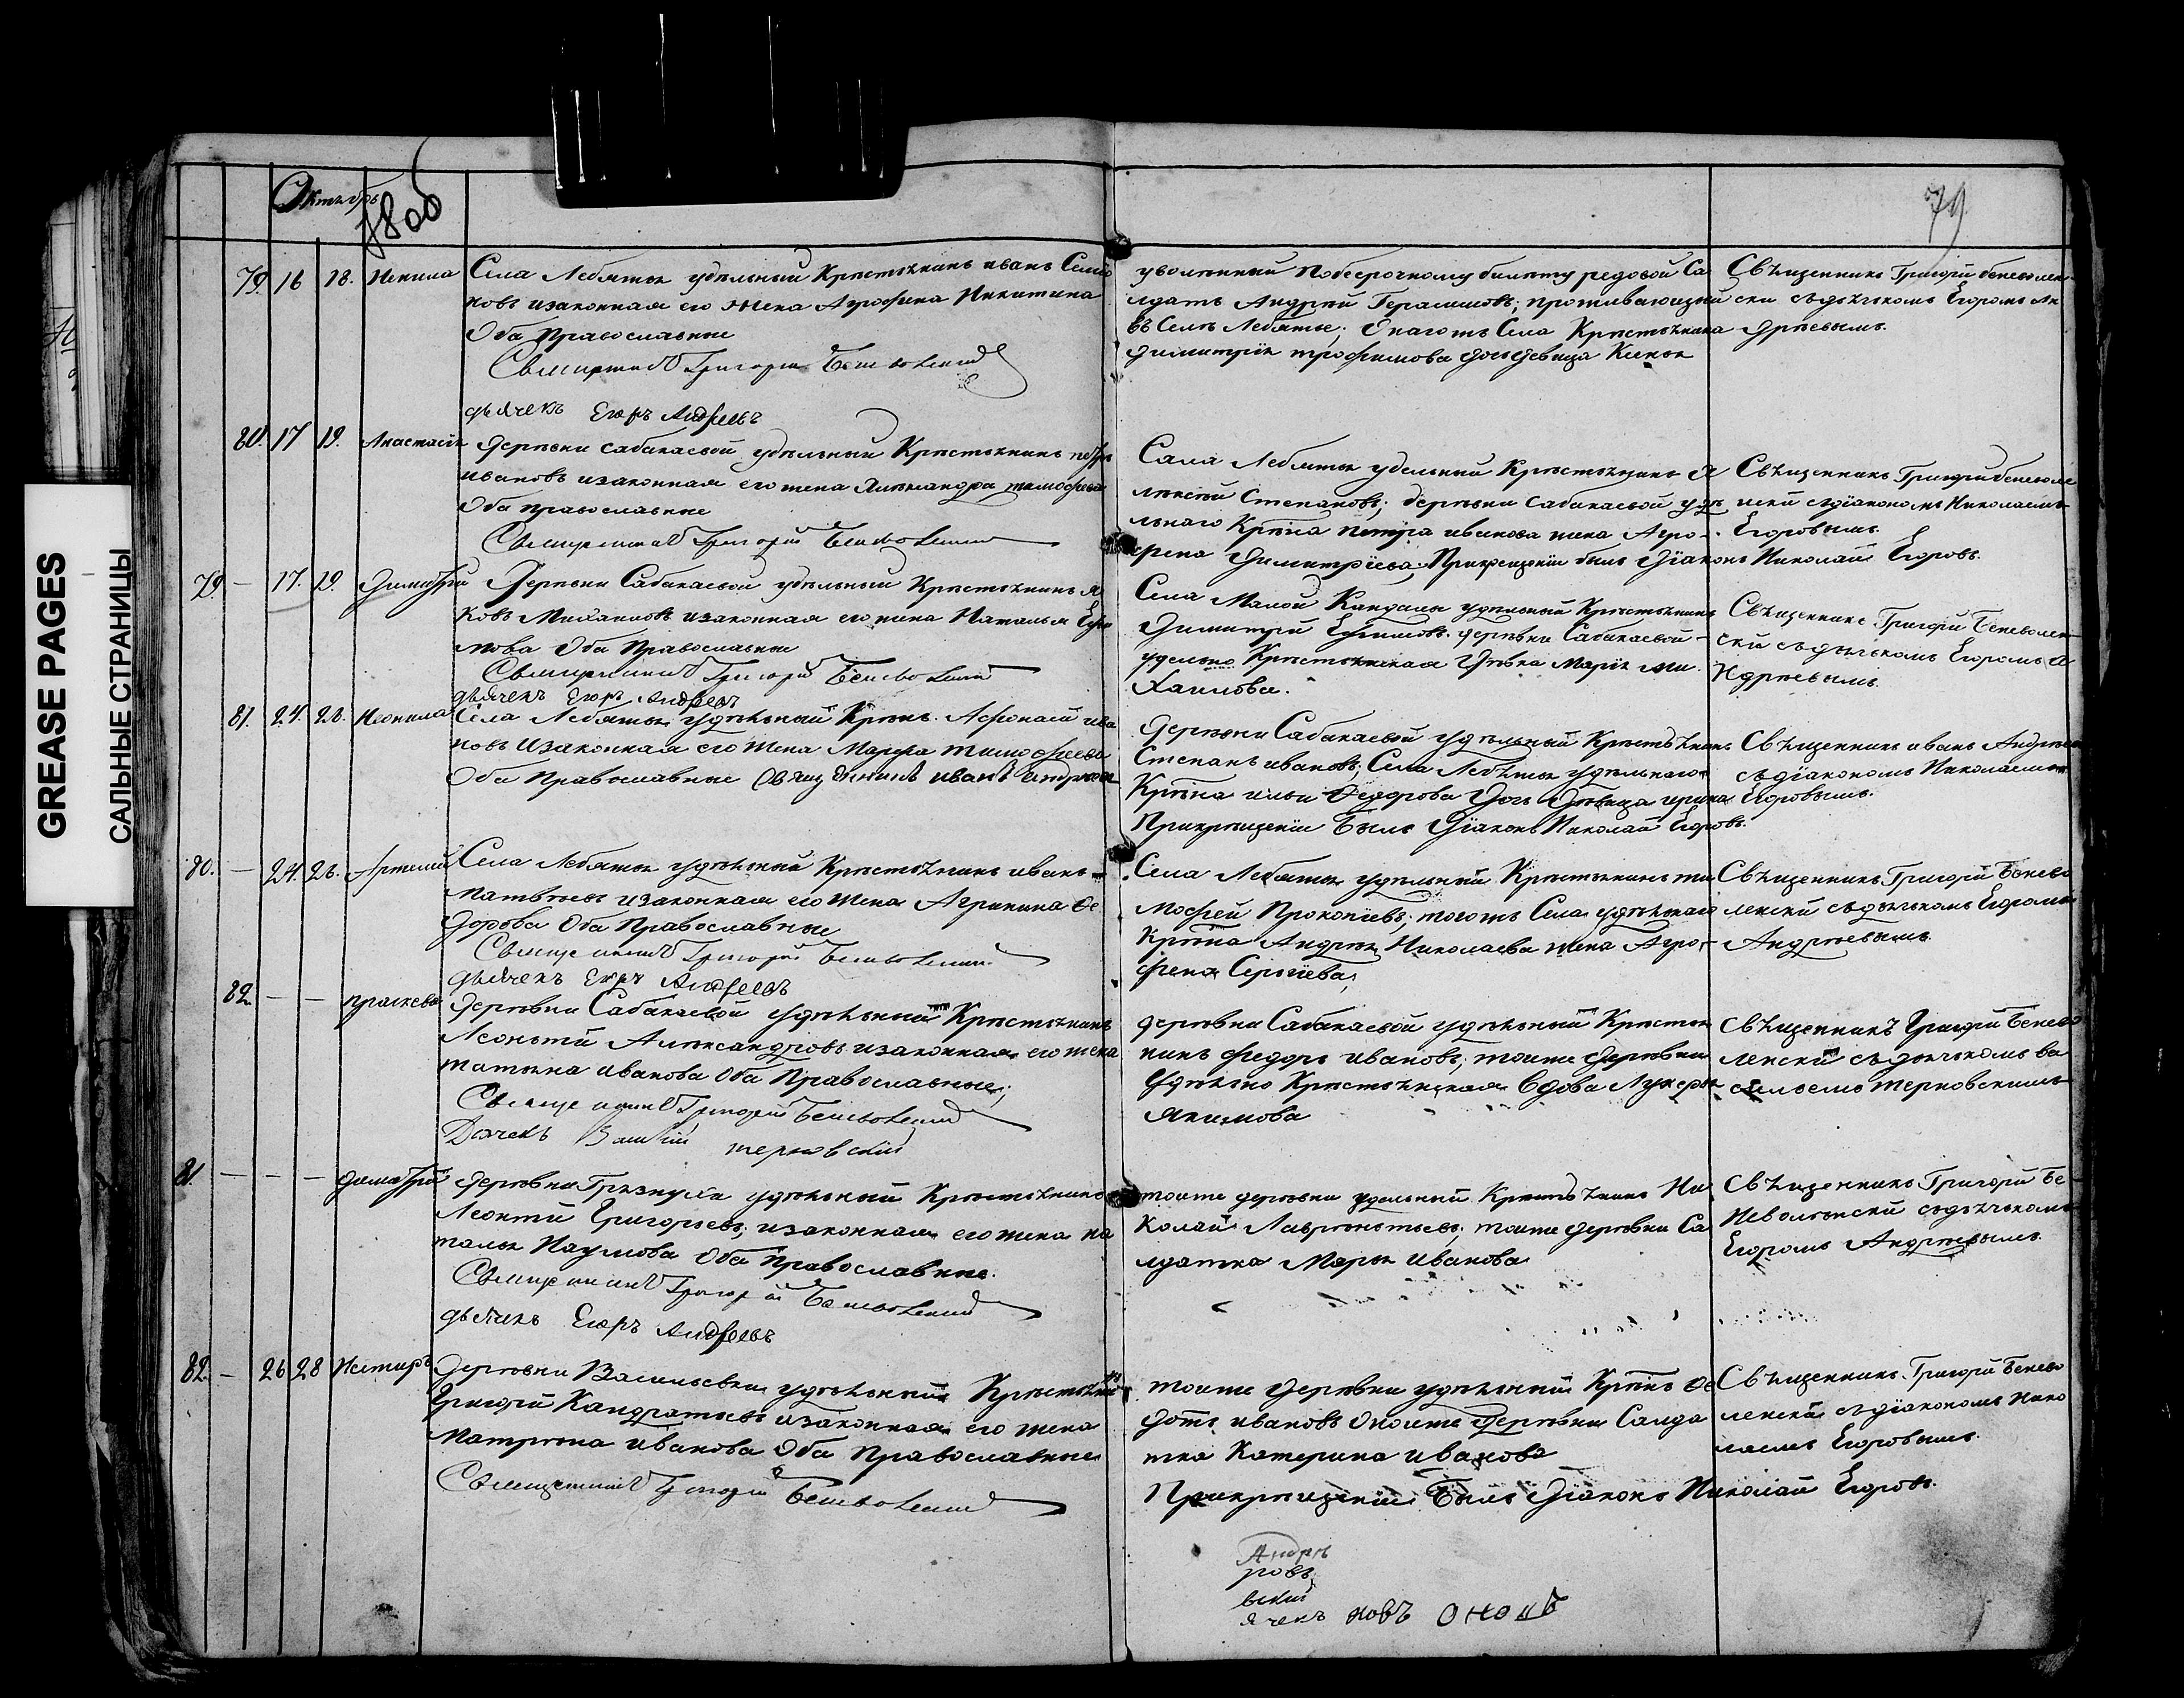 GREASE PAGES
САЛЬНЫЕ СТРАНИЦЫ
Октябрь
79
79. 16 18.
Села Лебяжья удѣльный Крестьянинъ иванъ
новъ изаконная его жена Агрофина Никитина
Оба Православные
Григорий
дьячекъ Егоръ Андреевъ
уволенный побесрочному билету редовой Са
лдатъ Андрей Герасимовъ; проживающий
въ Селѣ Лебяжье; Онагожъ Села Крестьянина
димитрія трофимова дочь девица
Свѣщенникъ Григорий беневолен
ски съдячькомъ Егоромъ Ан
дреевымъ.
80. 17 19. Анастасія
деревни сабакаевой удѣльный Крестьянинъ петръ
ивановъ изаконная его жена Александра тимофеева
Оба православные
Григорий
Села Лебяжья удельный Крестьянинъ А
лексей Степановъ; деревни сабакаевой удѣ
льнаго Крѣна петра иванова жена Агро-
фена Димитріева; Прикрещеніи былъ Діаконъ Николай Егоровъ.
Свѣщенникъ Григорий беневоле
нски съдіакономъ Николаемъ
Егоровымъ
79. — 17. 19. Димитрий
Деревни Сабакаевой удѣльный Крестьянинъ Я
ковъ Михаиловъ изаконная его жена Наталья Ефи
мова Оба Православные
Григорий
дьячекъ Егоръ Андреевъ
Села Малой Кандалы удѣльный Крестьянинъ
Димитрий Ефимовъ. деревни Сабакаевой
удельно Крестьянская дѣвка Марія Ми
Хаилова.
Свѣщенникъ Григорий Беневолен
ски съдячькомъ Егоромъ А
ндреевымъ.
81. 24. 26. Неонила
Села Лебяжья удѣльный Крѣнъ. Афонасий ива
новъ изаконная его жена Марфа тимофеева
Оба Православные Свящденникъ иванъ андреевъ
Деревни Сабакаевой удѣльный Крестьянинъ
Степанъ ивановъ, Села Лебяжья удѣльнаго
Крѣна ильи Федорова дочь дѣвица ирина
Прикрещеніи былъ Діаконъ Николай Егоровъ.
Свѣщенникъ иванъ Андреев
съдіакономъ Николаемъ
Егоровымъ.
80. — 24. 26. Артемий
Села Лебяжья удѣльный Крестьянинъ иванъ
матвѣевъ изаконная его жена Агрипина Фе
дорова Оба Православные
Григорий
дьячекъ Егоръ Андреевъ
Села Лебяжья удѣльный Крестьянинъ ти
мофей Прокопіевъ; тогожъ Села удѣльнаго
Крѣна Андрея Николаева жена Агро-
фена Сергіева;
Свѣщенникъ Григорий Бенево
ленски съдячькомъ Егоромъ
Андреевымъ.
82. — — праскева
деревни Сабакаевой удѣльный Крестьянинъ
Леонтий Александровъ изаконная его жена
татьяна иванова Оба Православные;
Григорий
Дьячекъ терновский
деревни Сабакаевой удѣльный Крестья
нинъ федоръ ивановъ; тоиже деревни
Удѣльно Крестьянская вдова Лукерья
якимова
Свѣщенникъ Григорий Бенево
ленски съдячькомъ ва
сильемъ терновскимъ
81. — — — димитрий
деревни Грязнухи удѣльный Крестьянинъ
Леонтий Григорьевъ; изаконная его жена на
талья Наумова Оба Православные.
Григорий
дьячекъ Егоръ Андреевъ
тоиже деревни удельный Крестьянинъ Ни
колай Лаврентьевъ; тоиже деревни Са
лдатка Марья иванова
Свѣщенникъ Григорий Бе-
неволенски съдячькомъ
Егоромъ Андреевымъ.
82. — 26 28 Нестиръ
Деревни Васильевки удѣльный Крестьянинъ
Григорий Кандратьевъ изаконная его жена
Матрена иванова Оба Православные
Григорий
тоиже деревни удѣльный Крѣнъ Фе
дотъ ивановъ деревни Салда
тка Катерина иванова
Прикрещеніи былъ Діаконъ Николай Егоровъ.
Свѣщенникъ. Григорий Бенево
ленски съдіакономъ Нико
лаемъ Егоровымъ.
ячекъ новъ